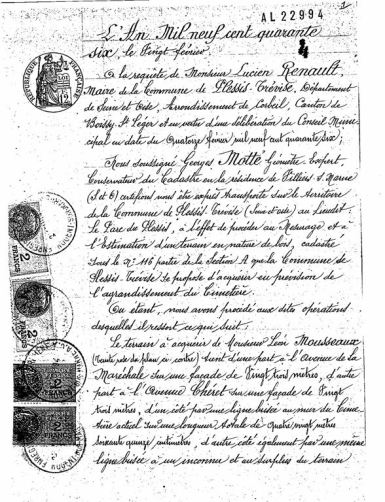 1
AL 22994
L'An Mil neuf cent quarante
six, le Vingt février
A la requête de Monsieur Lucien Renault,
Maire de la Commune de Plessis-Trévise, Département
de Seine et Oise, Arrondissement de Corbeil, Canton de
Boissy St Léger et en vertu d'une délibération du Conseil Muni-
cipal en date du Quatorze février mil neuf cent quarante six;
Nous soussigné Georges Motte Géomètre-Expert,
Conservateur du Cadastre en la résidence de Villiers s. Marne
(S et O) certifions nous être exprès transporté sur le territoire
de la Commune de Plessis-Trévise (Seine et Oise) au Lieudit
le Parc du Plessis, à l'effet de procéder au Mesurage et à
l'Estimation d'un terrain en nature de bois, cadastré
sous le N° 116 partie de la Section A que la Commune de
Plessis-Trévise se propose d'acquérir en prévision de
l'agrandissement du Cimetière.
Ou étant, nous avons procédé aux dites opérations
desquelles il ressort ce qui suit.
Le terrain à acquérir de Monsieur Léon Mousseaux
(teinte rose du plan ci-contre) tient d'une part à l'Avenue de la
Maréchale sur une façade de Vingt trois mètres, d'autre
part à l'Avenue Chéret sur une façade de Vingt
trois mètres, d'un coté par une ligne brisée au mur du Cime-
tière actuel sur une longueur totale de Quatre vingt mètres
soixante quinze centimètres, d'autre coté également par une même
ligne brisée à un inconnu et au surplus du terrain
RÉPUBLIQUE FRANÇAISE
2 FRANCS
2 FRANCS
2 FRANCS
FRANCS